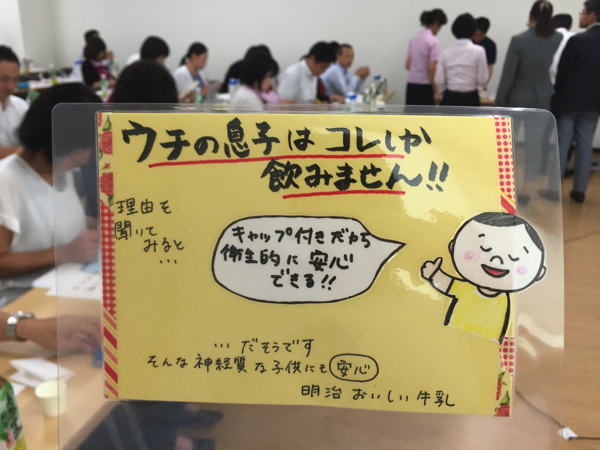 ウチの息子はコレしか
飲みません!!
理由を
聞いて
みると
…
キャップ付きだから
衛生的に安心
できる!!
…だそうです
そんな神経質な子供にも安心
明治おいしい牛乳